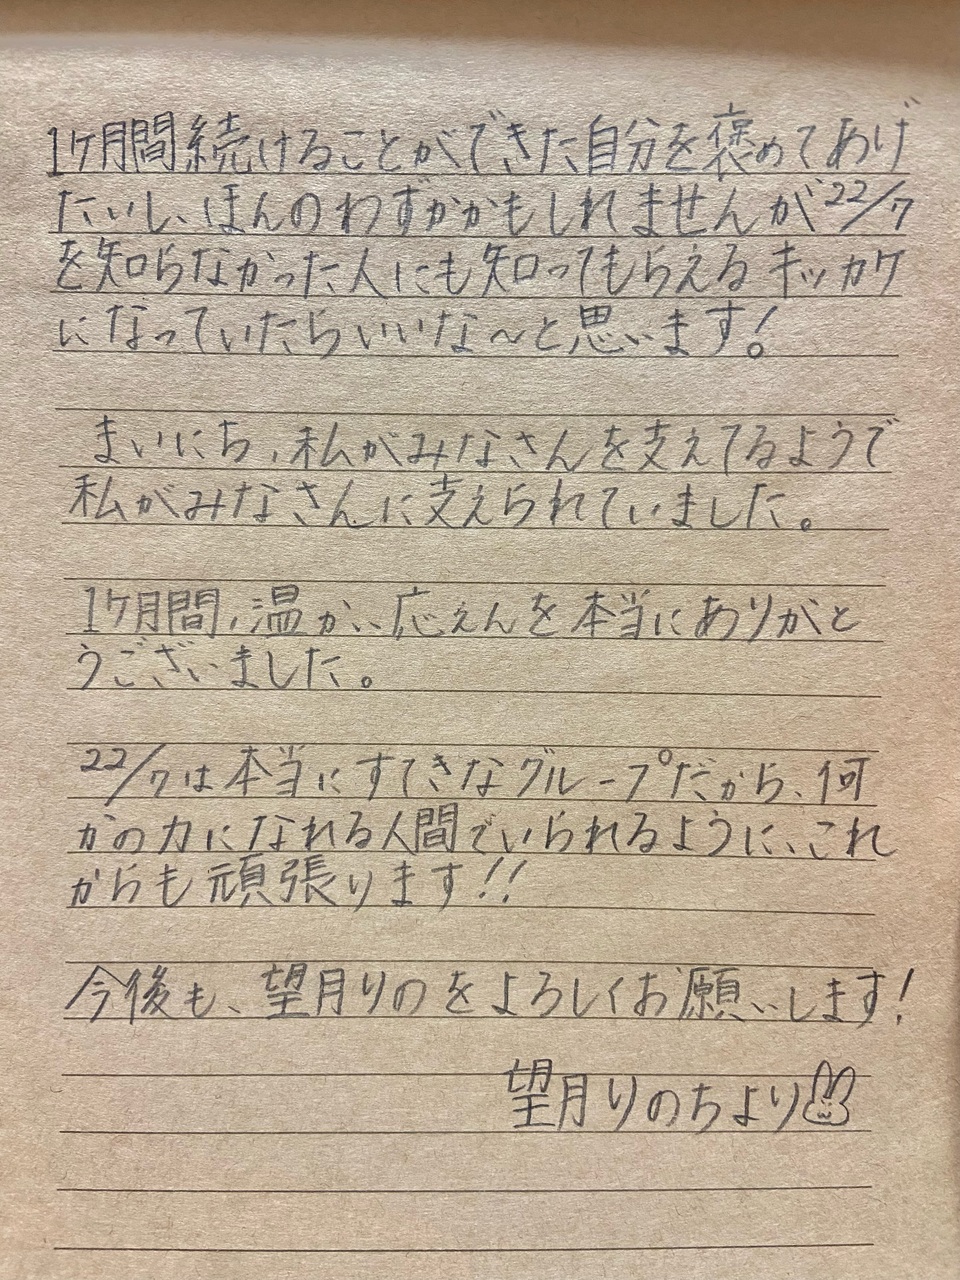 1ケ月間続けることができた自分を褒めてあげ
たいし、ほんのわずかかもしれませんが22/7
を知らなかった人にも知ってもらえるキッカケ
になっていたらいいな〜と思います!
まいにち、私がみなさんを支えてるようで
私がみなさんに支えられていました。
1ケ月間、温かい応えんを本当にありがと
うございました。
22/7は本当にすてきなグループだから、何
かの力になれる人間でいられるように、これ
からも頑張ります!!
今後も、望月りのをよろしくお願いします!
望月りのちより